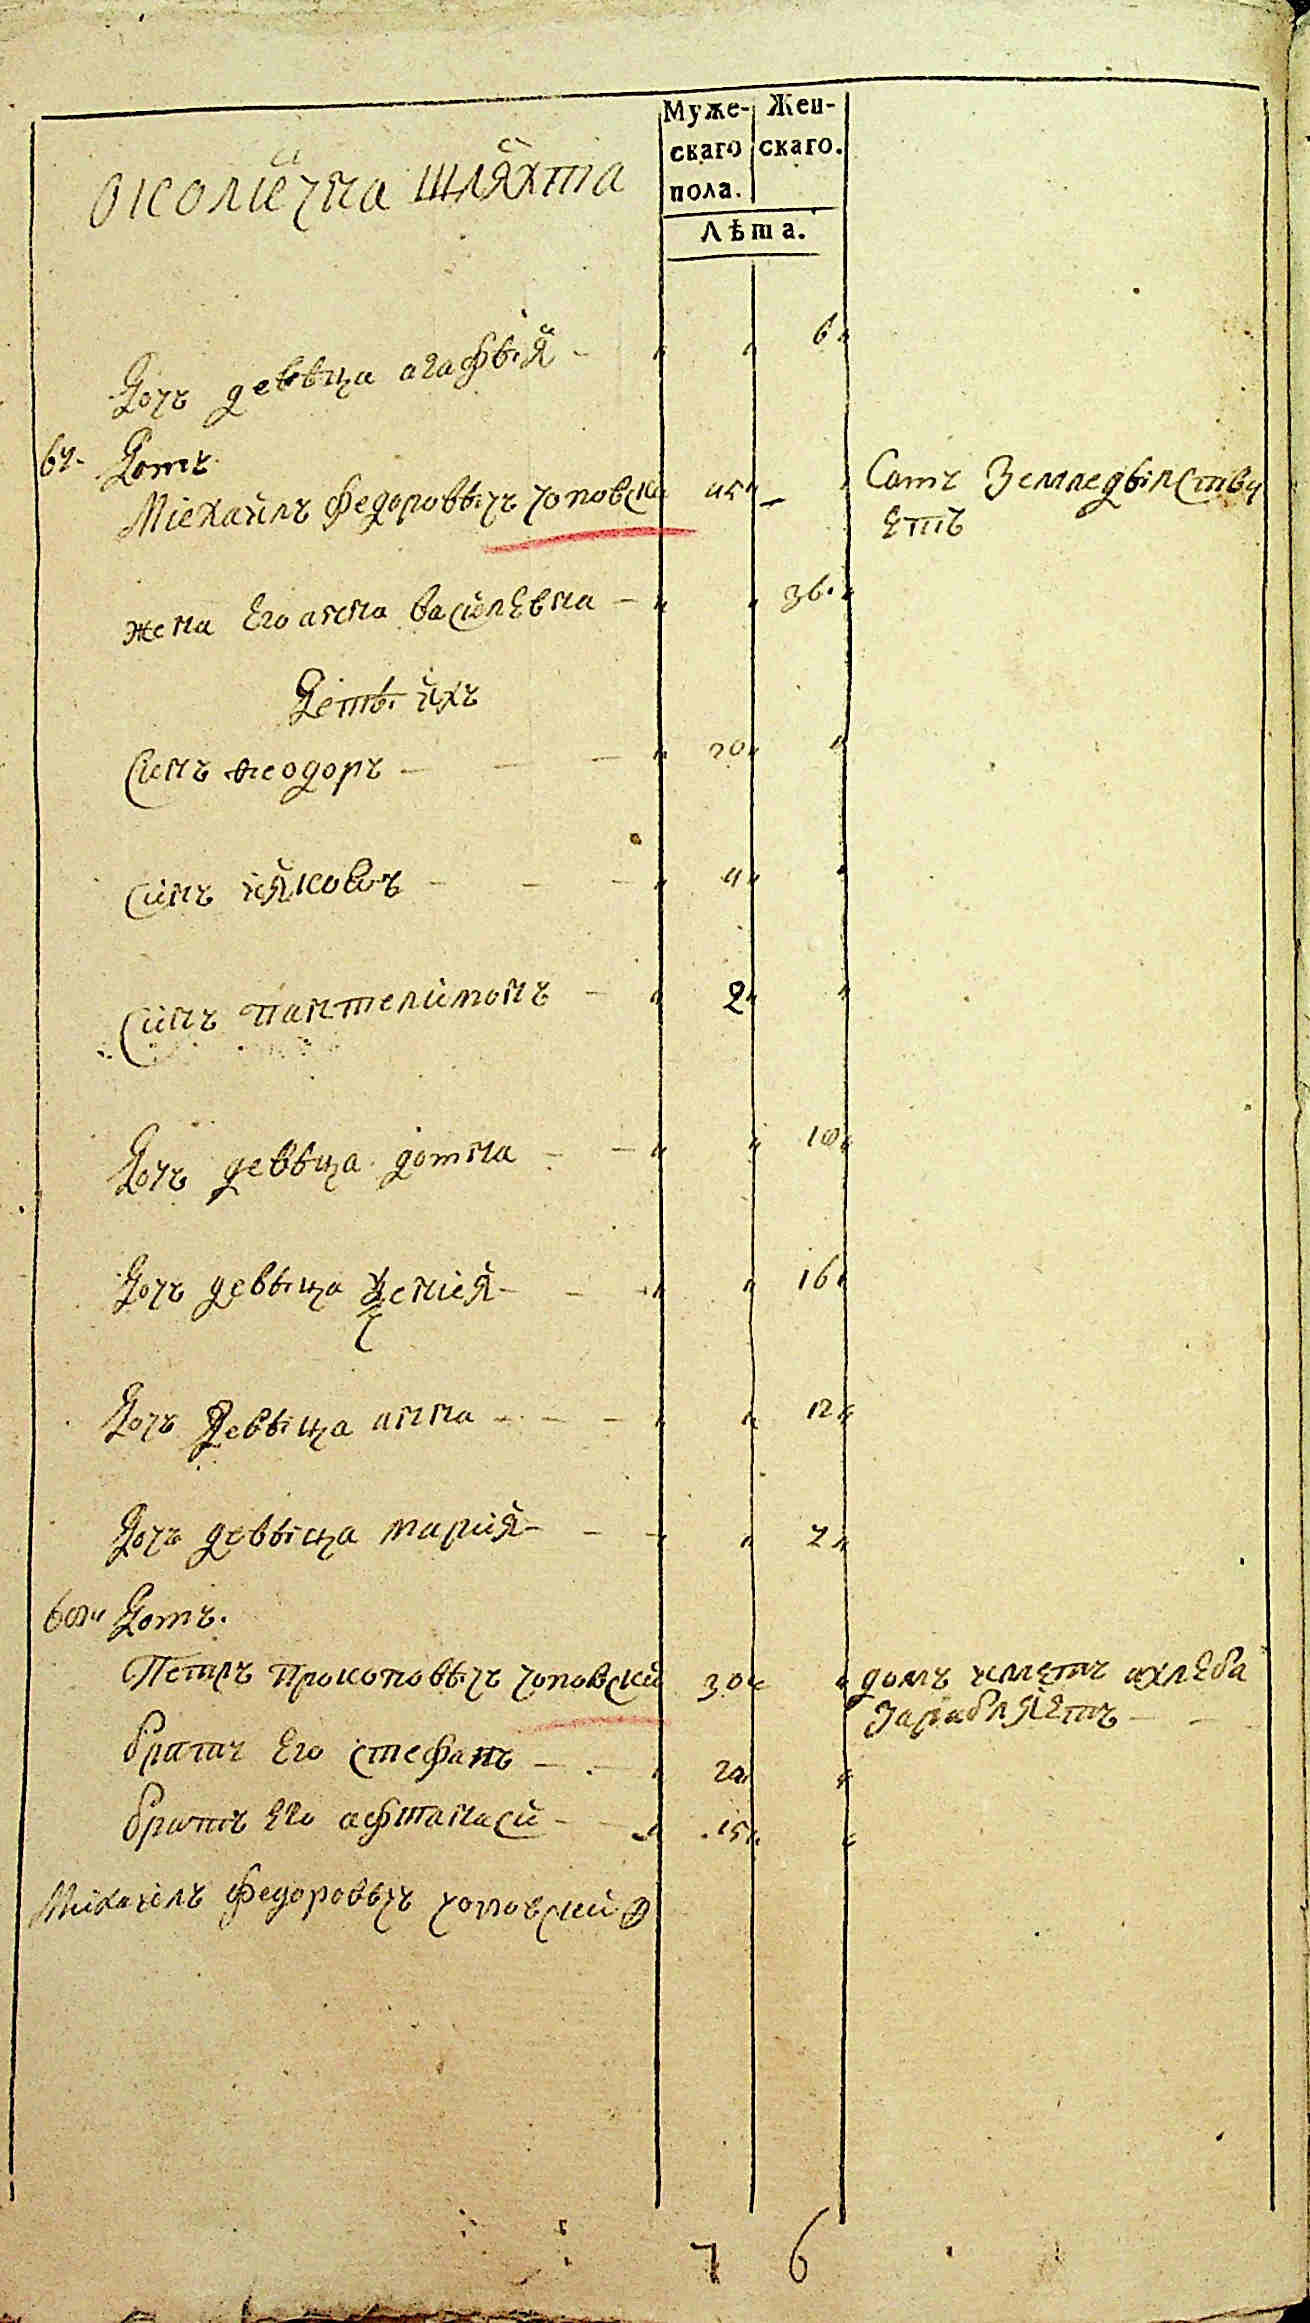 Муже- Жен-
скаго скаго.
пола.
Лѣта.
околична шляхта
Дочъ девѣца агафѣя - „ „ 6„
Домъ
Міехайлъ Федоровѣчъ чоповски 45„ Самъ Землед Ѣлству
етъ
жена Его анна васйлЕвна - „ „ 36.„
Детѣ ихъ
Синъ феодоръ - - - „ 20„ „
Синъ іяковъ - - - „ 4„ „
Синъ пантелимонъ - „ 2„ „
Дочъ девѣца домна - - „ „ 18„
Дочъ девѣца Ксенія - - „ „ 16„
Дочъ Девѣца анна - - - „ „ 12„
Дочъ девѣца мария - - - „ „ 7„
Домъ.
Петръ Прокоповѣчъ чоповский 30„ „ домъ имѣетъ ихлЕба
ЗарабляЕтъ - -
братъ Его стефанъ - - „ 20„ „
братъ Его афтанаси - - „ 15„ „
Михаілъ Федоровѣчъ чоповский
7 6